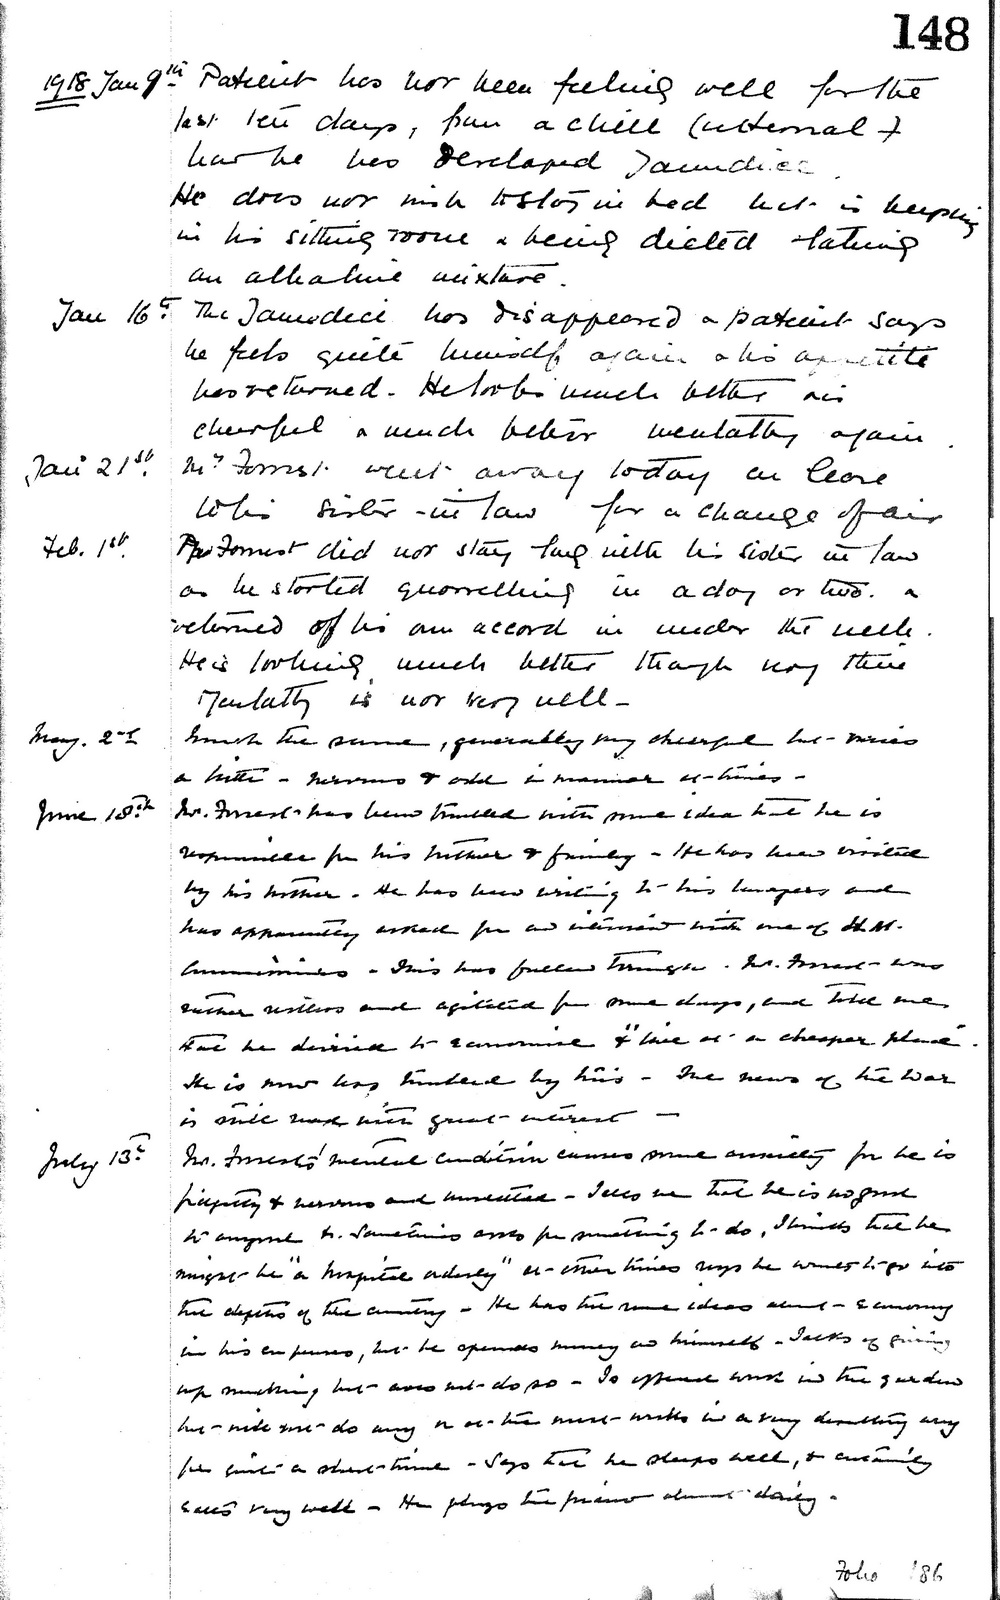 148
1918 Jan 9th Patient has not been feeling well for the
last ten days, from a chill (internal &
now he has Developed Jaundice.
He does not wish to stay in bed but is keeping
in his sitting room & being dieted & taking
an alkaline mixture.
Jan 16th. The Jaundice has disappeared & patient says
he feels quite himself again & his appetite
has returned. He looks much better & is
cheerful & much better mentally again.
Jan 21st. Mr Forrest went away today on leave
to his sister-in-law for a change of air
Feb. 1st. Mr Forrest did not stay long with his sister in law
as he started quarrelling in a day or two. &
returned of his own accord in under the week.
He is looking much better though
Mentally is not very well -
May. 2nd Much the same, generally very cheerful but varies
a little - nervous & odd in manner at times -
June 18th Mr. Forrest has been troubled with some idea that he is
responsible for his brother & family - He has been visited
by his brother - He has been writing to his lawyers and
has apparently asked for an interview with one of H.M.
Commissioners - This has fallen through. Mr. Forrest was
rather restless and agitated for some days, and told me
that he desired to economise & "live at a cheaper place".
He is now less troubled by this - The news of the War
is still read with great interest -
July 13th Mr. Forrest's mental condition causes some anxiety for he is
fidgetty & nervous and unsettled - Tells me that he is no good
to anyone &. Sometimes asks for something to do, Thinks that he
might be "a hospital orderly" at other times says he wants to go into
the depths of the country - He has the same ideas about economy
in his expenses, but he spends money on himself - Talks of giving
up smoking but does not do so - Is offered work in the garden
but will not do any or at the most works in a very desultory way
for quite a short time - Says that he sleeps well, & certainly
eats very well - He plays the piano almost daily -
Folio 186